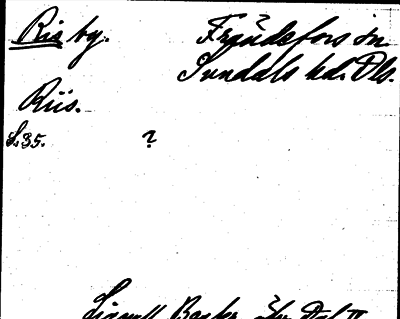 Ris by. Frändefors sn.
Sundals hd. Dls.
Riis.
S. 35. ?
Linnell Banker öfver Dal II